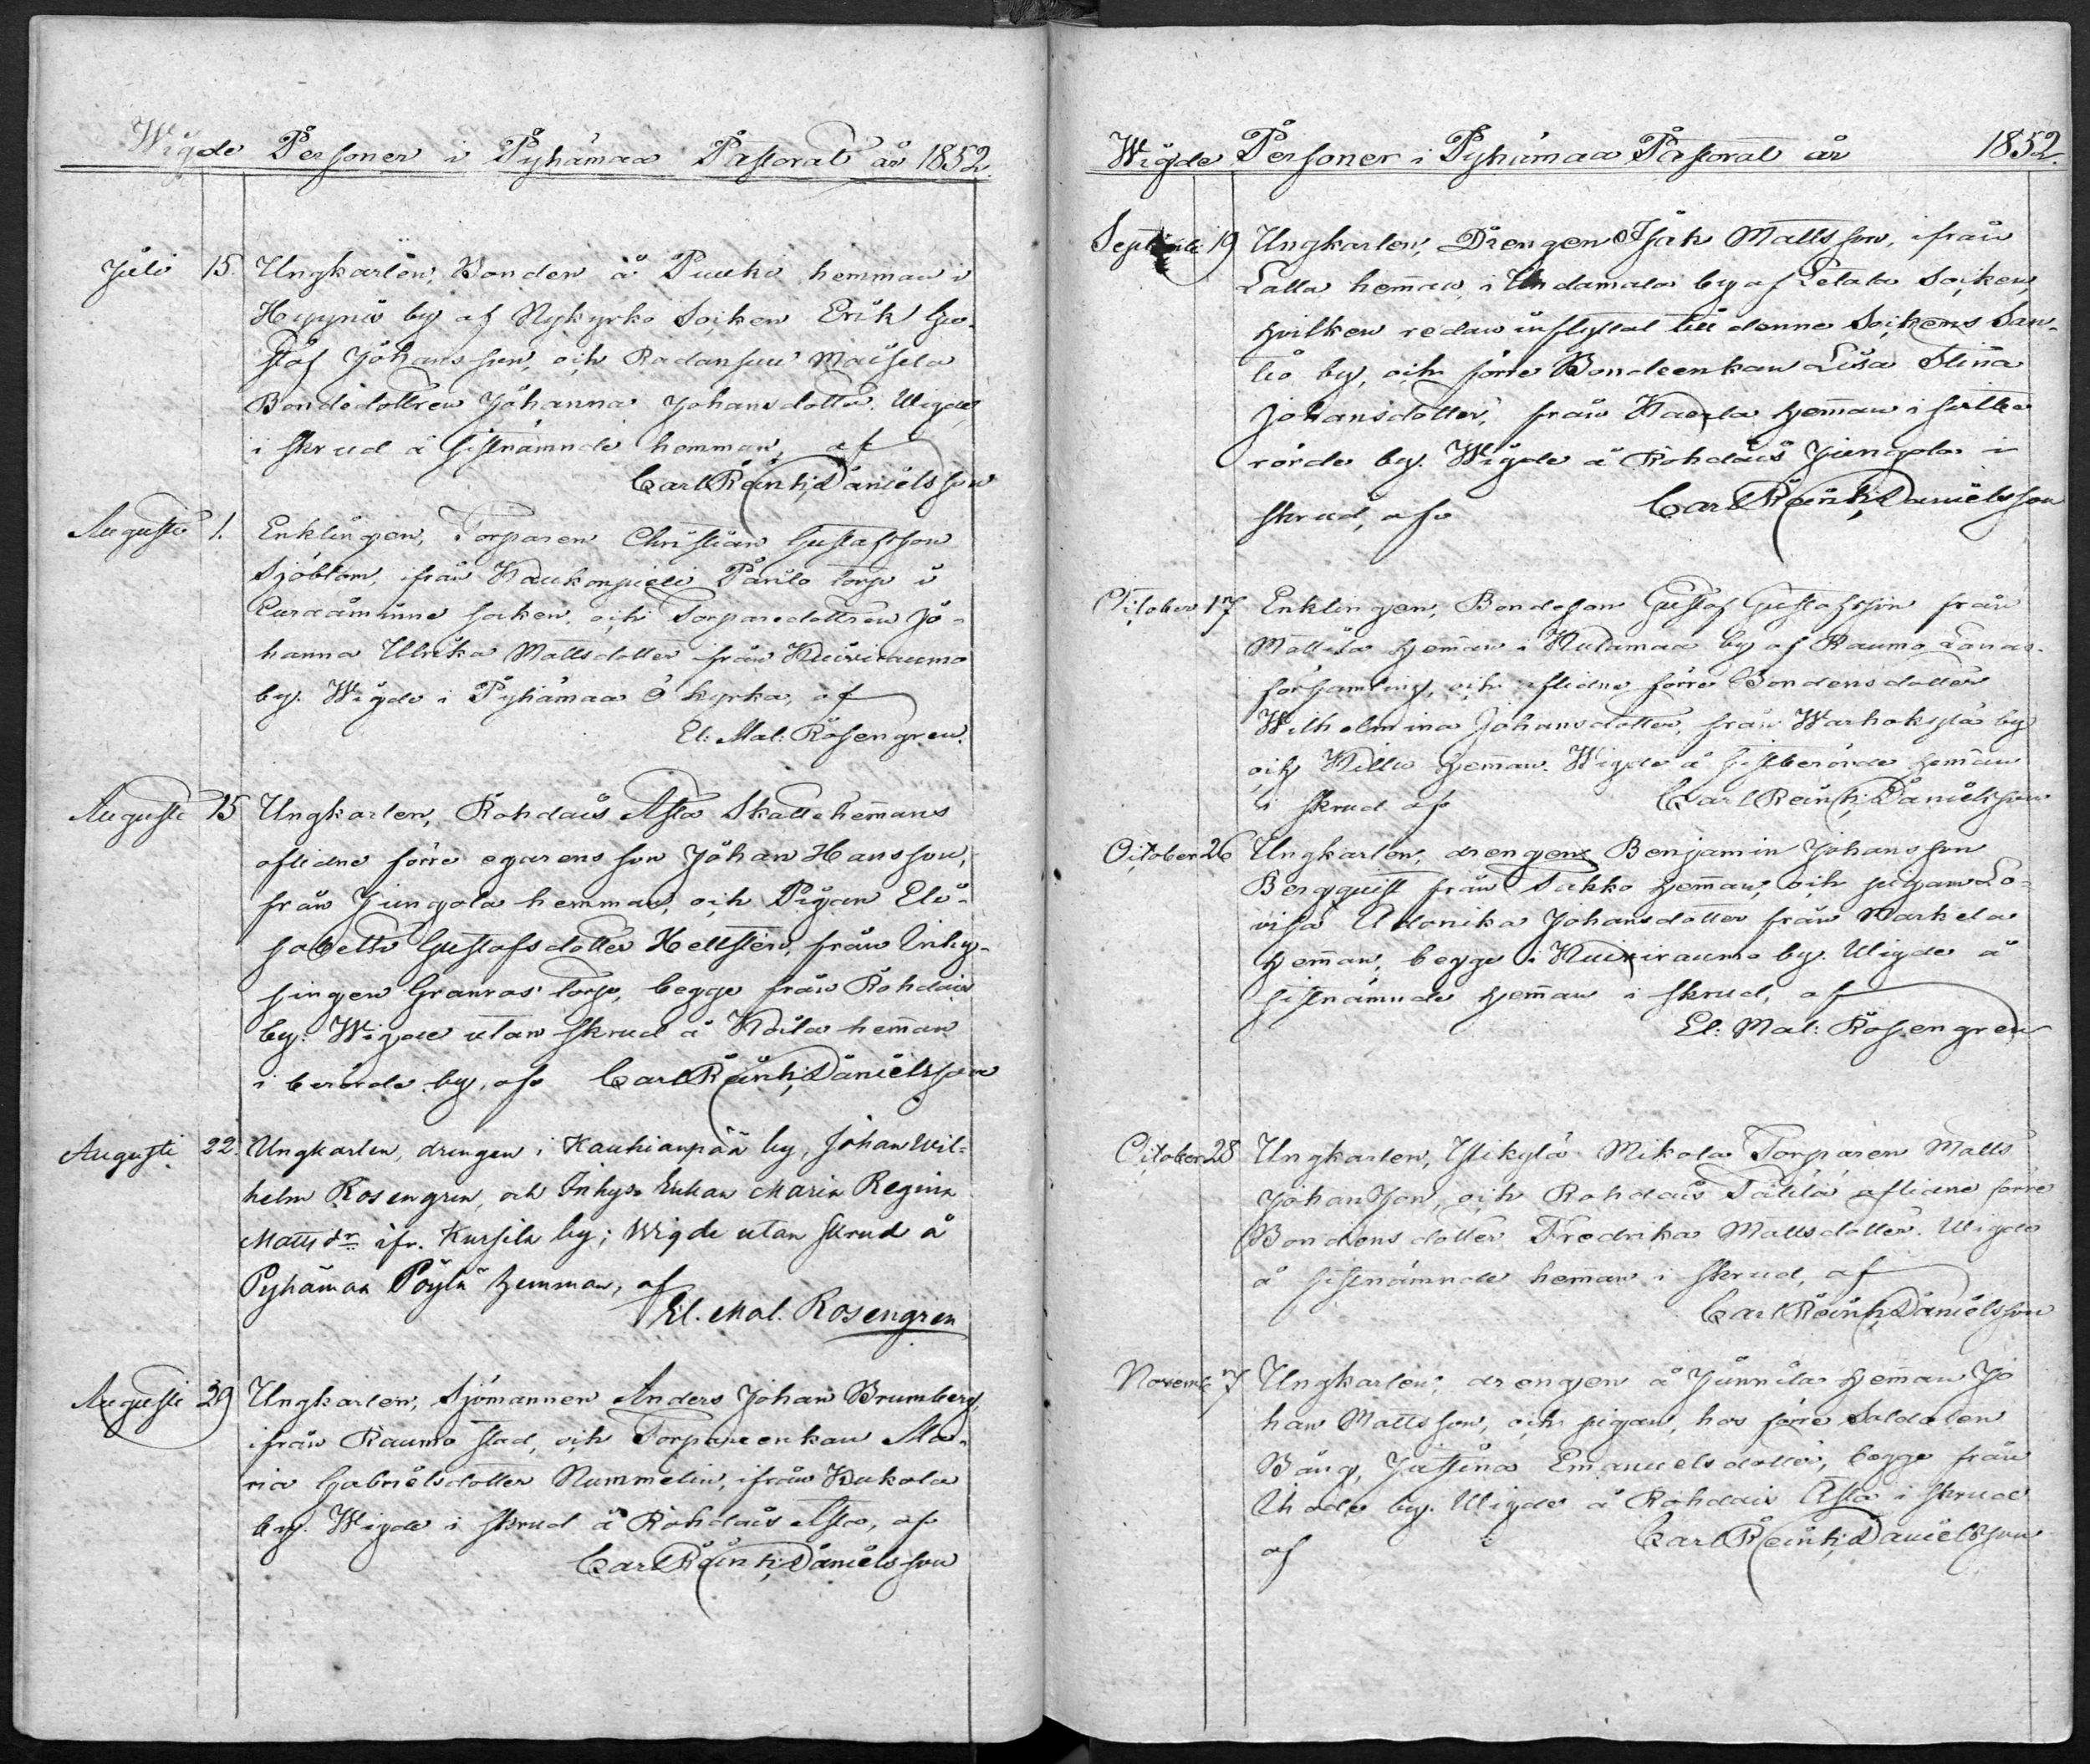 Wigde Personer i Pyhämaa Pastorat år 1852.
Juli 15. Ungkarlen, Bonden å Puuki hemman i
Hyyniö by af Nykyrko Socken Erik Gu-
staf Johansson, och Radansuu Maisela
Bondedottren Johanna Johansdotter. Wigde
i skrud å sistnämnde hemman, af
Carl Reinh: Danielsson
Augusti 1. Enklingen, Torparen Christian Gustafsson
Sjöblom, ifrån Kaukonpieli Panilo torp i
Euraåminne socken, och Torparedottren Jo-
hanna Ulrika Mattsdotter från Kuiviraumo
by. Wigde i Pyhämaa Ö kyrka, af
El: Mal: Rosengren.
Augusti 15 Ungkarlen, Rohdais Asta Skattehemans
aflidne förre egarens son Johan Hansson,
från Jungola hemman, och Pigan Eli-
sabeth Gustafsdotter Hellsten, från Inhy-
singen Granroos torp, begge från Rohdais
by. Wigde utan skrud å Koila heman
i berörde by, af Carl Reinh: Danielsson
Augusti 22. Ungkarlen, drengen i Kaukianpää by, Johan Wil-
helm Rosengren, och Inhys. Enkan Maria Regina
Matts dr ifr. Kursila by; Wigde utan skrud å
Pyhämaa Pöylä hemman, af
El. Mal. Rosengren
Augusti 29 Ungkarlen, Sjömannen Anders Johan Brumberg,
ifrån Raumo stad, och Torpareenkan Ma-
ria Gabrielsdotter Nummelin, ifrån Kukola
by. Wigde i skrud å Rohdais Asta, af
Carl Reinh: Danielsson
Wigde Personer i Pyhämaa Pastorat år 1852.
19 Ungkarlen, Drengen Isak Mattsson, ifrån
Lalla heman, i Undamala by af Letala Socken,
hvilken redan inflyttat till denne Sockens San-
tio by, och förre Bondeenkan Lisa Stina
Johansdotter, från Kaerla heman i sistbe-
rörde by. Wigde å Rohdais Jungola i
skrud, af Carl Reinh: Danielsson
October 17 Enklingen, Bondeson Gustaf Gustafsson från
Mattila heman i Kulamaa by af Raumo Lands-
församling, och aflidne förre Bondens dotter
Wilhelmina Johansdotter, från Warhokylä by
och Killu heman. Wigde å sistberörde heman
i skrud af Carl Reinh: Danielsson
October 26 Ungkarlen, drengen Benjamin Johansson
Bergquist från Sakko heman, och pigan Lo-
visa Adonika Johansdotter från Markela
heman, begge i Kuiviraumo by. Wigde å
sistnämnde heman i skrud, af
El: Mal: Rosengren
October 28 Ungkarlen, Ylikylä Mikola Torparen Matts
Johansson, och Rohdais Tälilä aflidne förre
Bondens dotter Fredrika Mattsdotter. Wigde
å sistnämnde heman i skrud, af
Carl Reinh: Danielsson
Novemb 7 Ungkarlen, drengen å Junnila heman Jo
han Mattsson, och pigan, hos förre Soldaten
Bäng, Justina Emanuelsdotter, begge från
Ihode by. Wigde å Rohdais Asta i skrud
af Carl Reinh: Danielsson